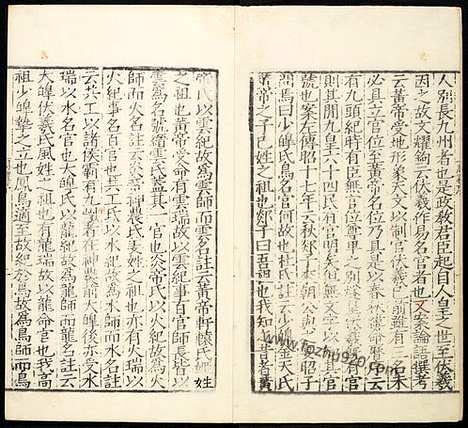 人別長九州者也是政敎君臣起自人皇之世至伏羲
因之故文耀鉤云伏羲作易名官者也又案論語撰考
云黃帝受地形象天文以制官伏羲已前雖有三名未
必具立官位至黃帝名位乃具是以春秋緯命曆序云
有九頭紀時有臣無官位尊卑之別燧皇伏羲旣有官
則其間九皇六十四民有官明矣但無文字以知其官
號也案左傳昭十七年云秋郯子來朝公與之宴昭子
問焉曰少皞氏鳥名官何故也少皞金天氏
黃帝之子己姓之祖也郯子曰吾祖也我知之昔者黃
帝氏以雲紀故爲雲師而雲名註云黃帝軒轅氏姬姓
之祖也黃帝受命有雲瑞故以雲紀事百官師長皆以
雲爲名號縉雲氏蓋其一官也炎帝氏以火紀故爲火
師而火名註云炎帝神農氏姜姓之祖也亦有火瑞以
火紀事名百官也共工氏以水紀故爲水師而水名註
云共工以諸侯霸有九州者在神農前大皞後亦受水
瑞以水名官也大皞氏以龍紀故爲龍師而龍名註云
大皞伏羲氏風姓之祖也有龍瑞故以龍命官也我高
祖少皞摯之立也鳳鳥適至故紀於鳥故爲鳥師而鳥